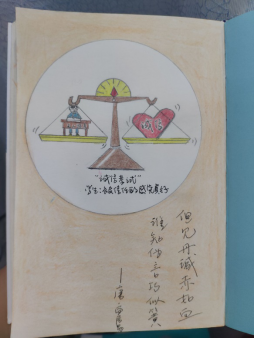 诚信
“诚信考试”
学生:被信任的感觉真好
但见丹诚赤如血
谁知伪言巧似簧